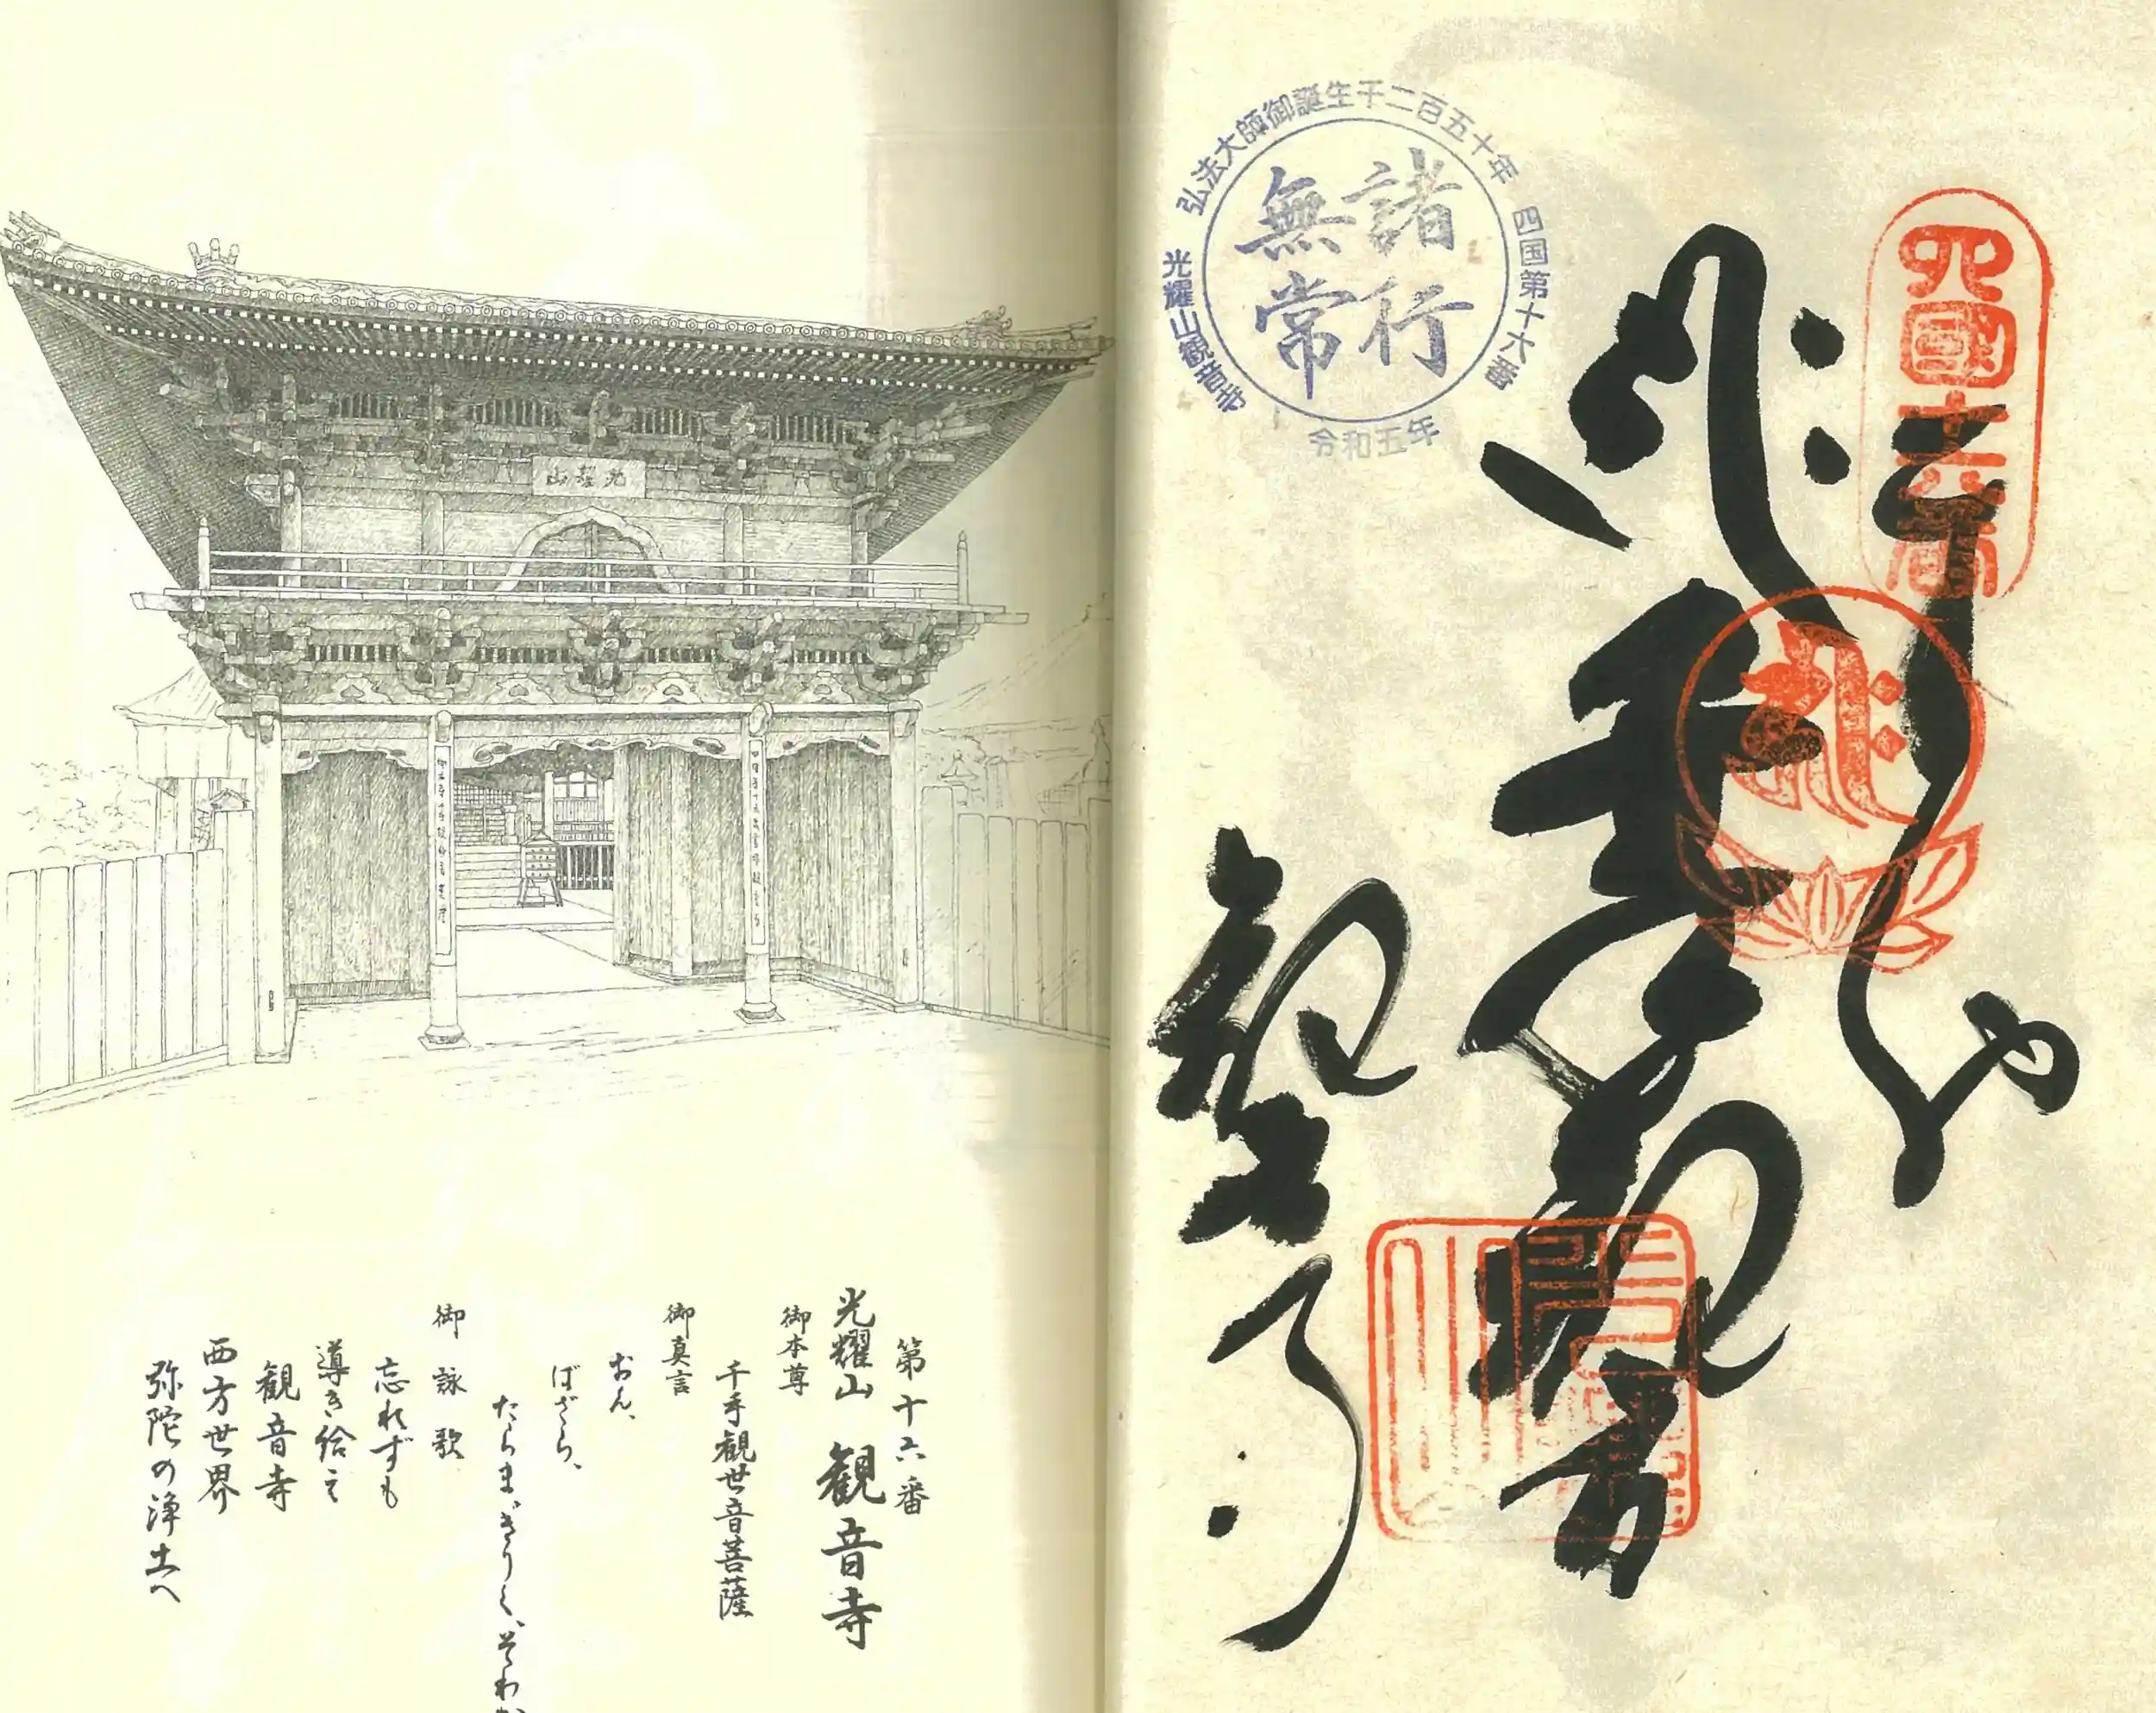 光耀山
第十六番
光耀山 観音寺
御本尊
千手観世音菩薩
御真言
おん、
ばざら、
たらま、きりく、そわか
御詠歌
忘れずも
導き給え
観音寺
西方世界
弥陀の浄土へ
弘法大師御誕生千二百五十年
四国第十六番
光耀山観音寺
令和五年
諸行
無常
四國十六番
奉
千手
観音